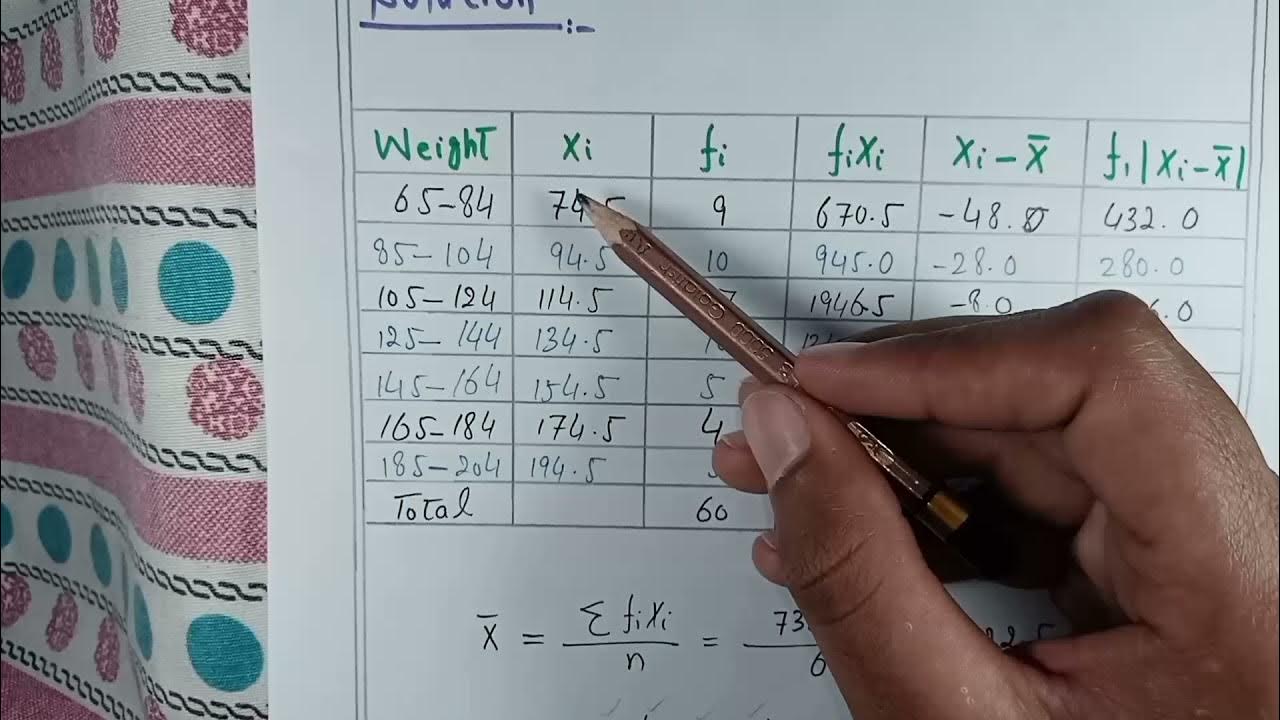 Solution :-
Weight xi fi fixi xi - x̄ fi|xi - x̄|
65-84 74.5 9 670.5 -48.0 432.0
85-104 94.5 10 945.0 -28.0 280.0
105-124 114.5 1946.5 -8.0
125-144 134.5
145-164 154.5 5
165-184 174.5 4
185-204 194.5
Total 60
x̄ = Σ fixi / n =